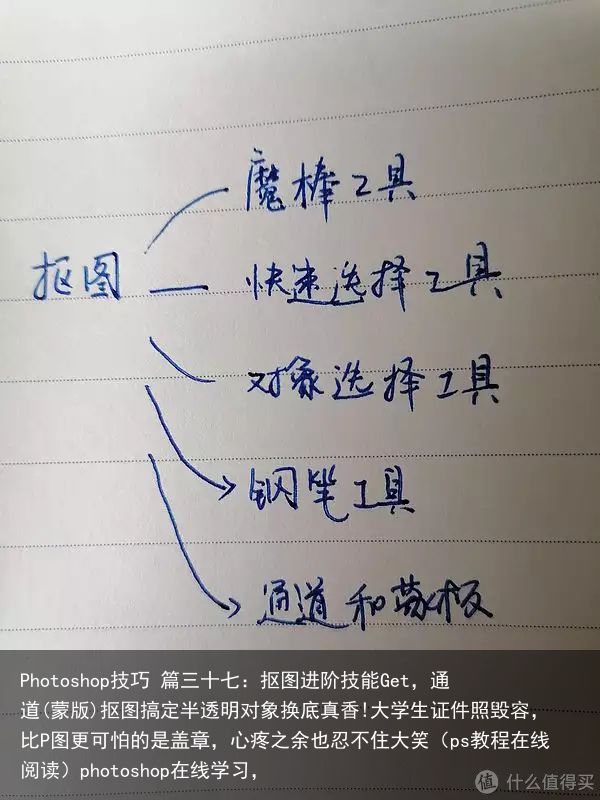 魔棒工具
抠图
快速选择工具
对象选择工具
钢笔工具
通道和蒙板
Photoshop技巧 篇三十七：抠图进阶技能Get，通
道(蒙版)抠图搞定半透明对象换底真香!大学生证件照毁容，
比P图更可怕的是盖章，心疼之余也忍不住大笑（ps教程在线
阅读）photoshop在线学习，
值 什么值得买